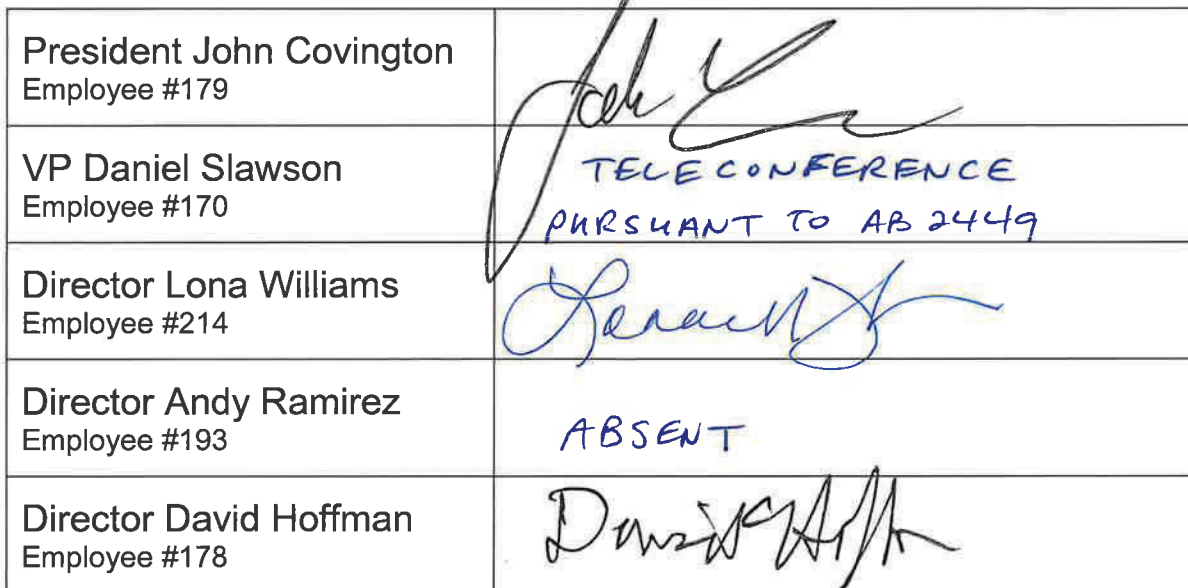 President John Covington
Employee #179
VP Daniel Slawson
Employee #170
TELECONFERENCE
PURSUANT TO AB 2449
Director Lona Williams
Employee #214
Director Andy Ramirez
Employee #193
ABSENT
Director David Hoffman
Employee #178